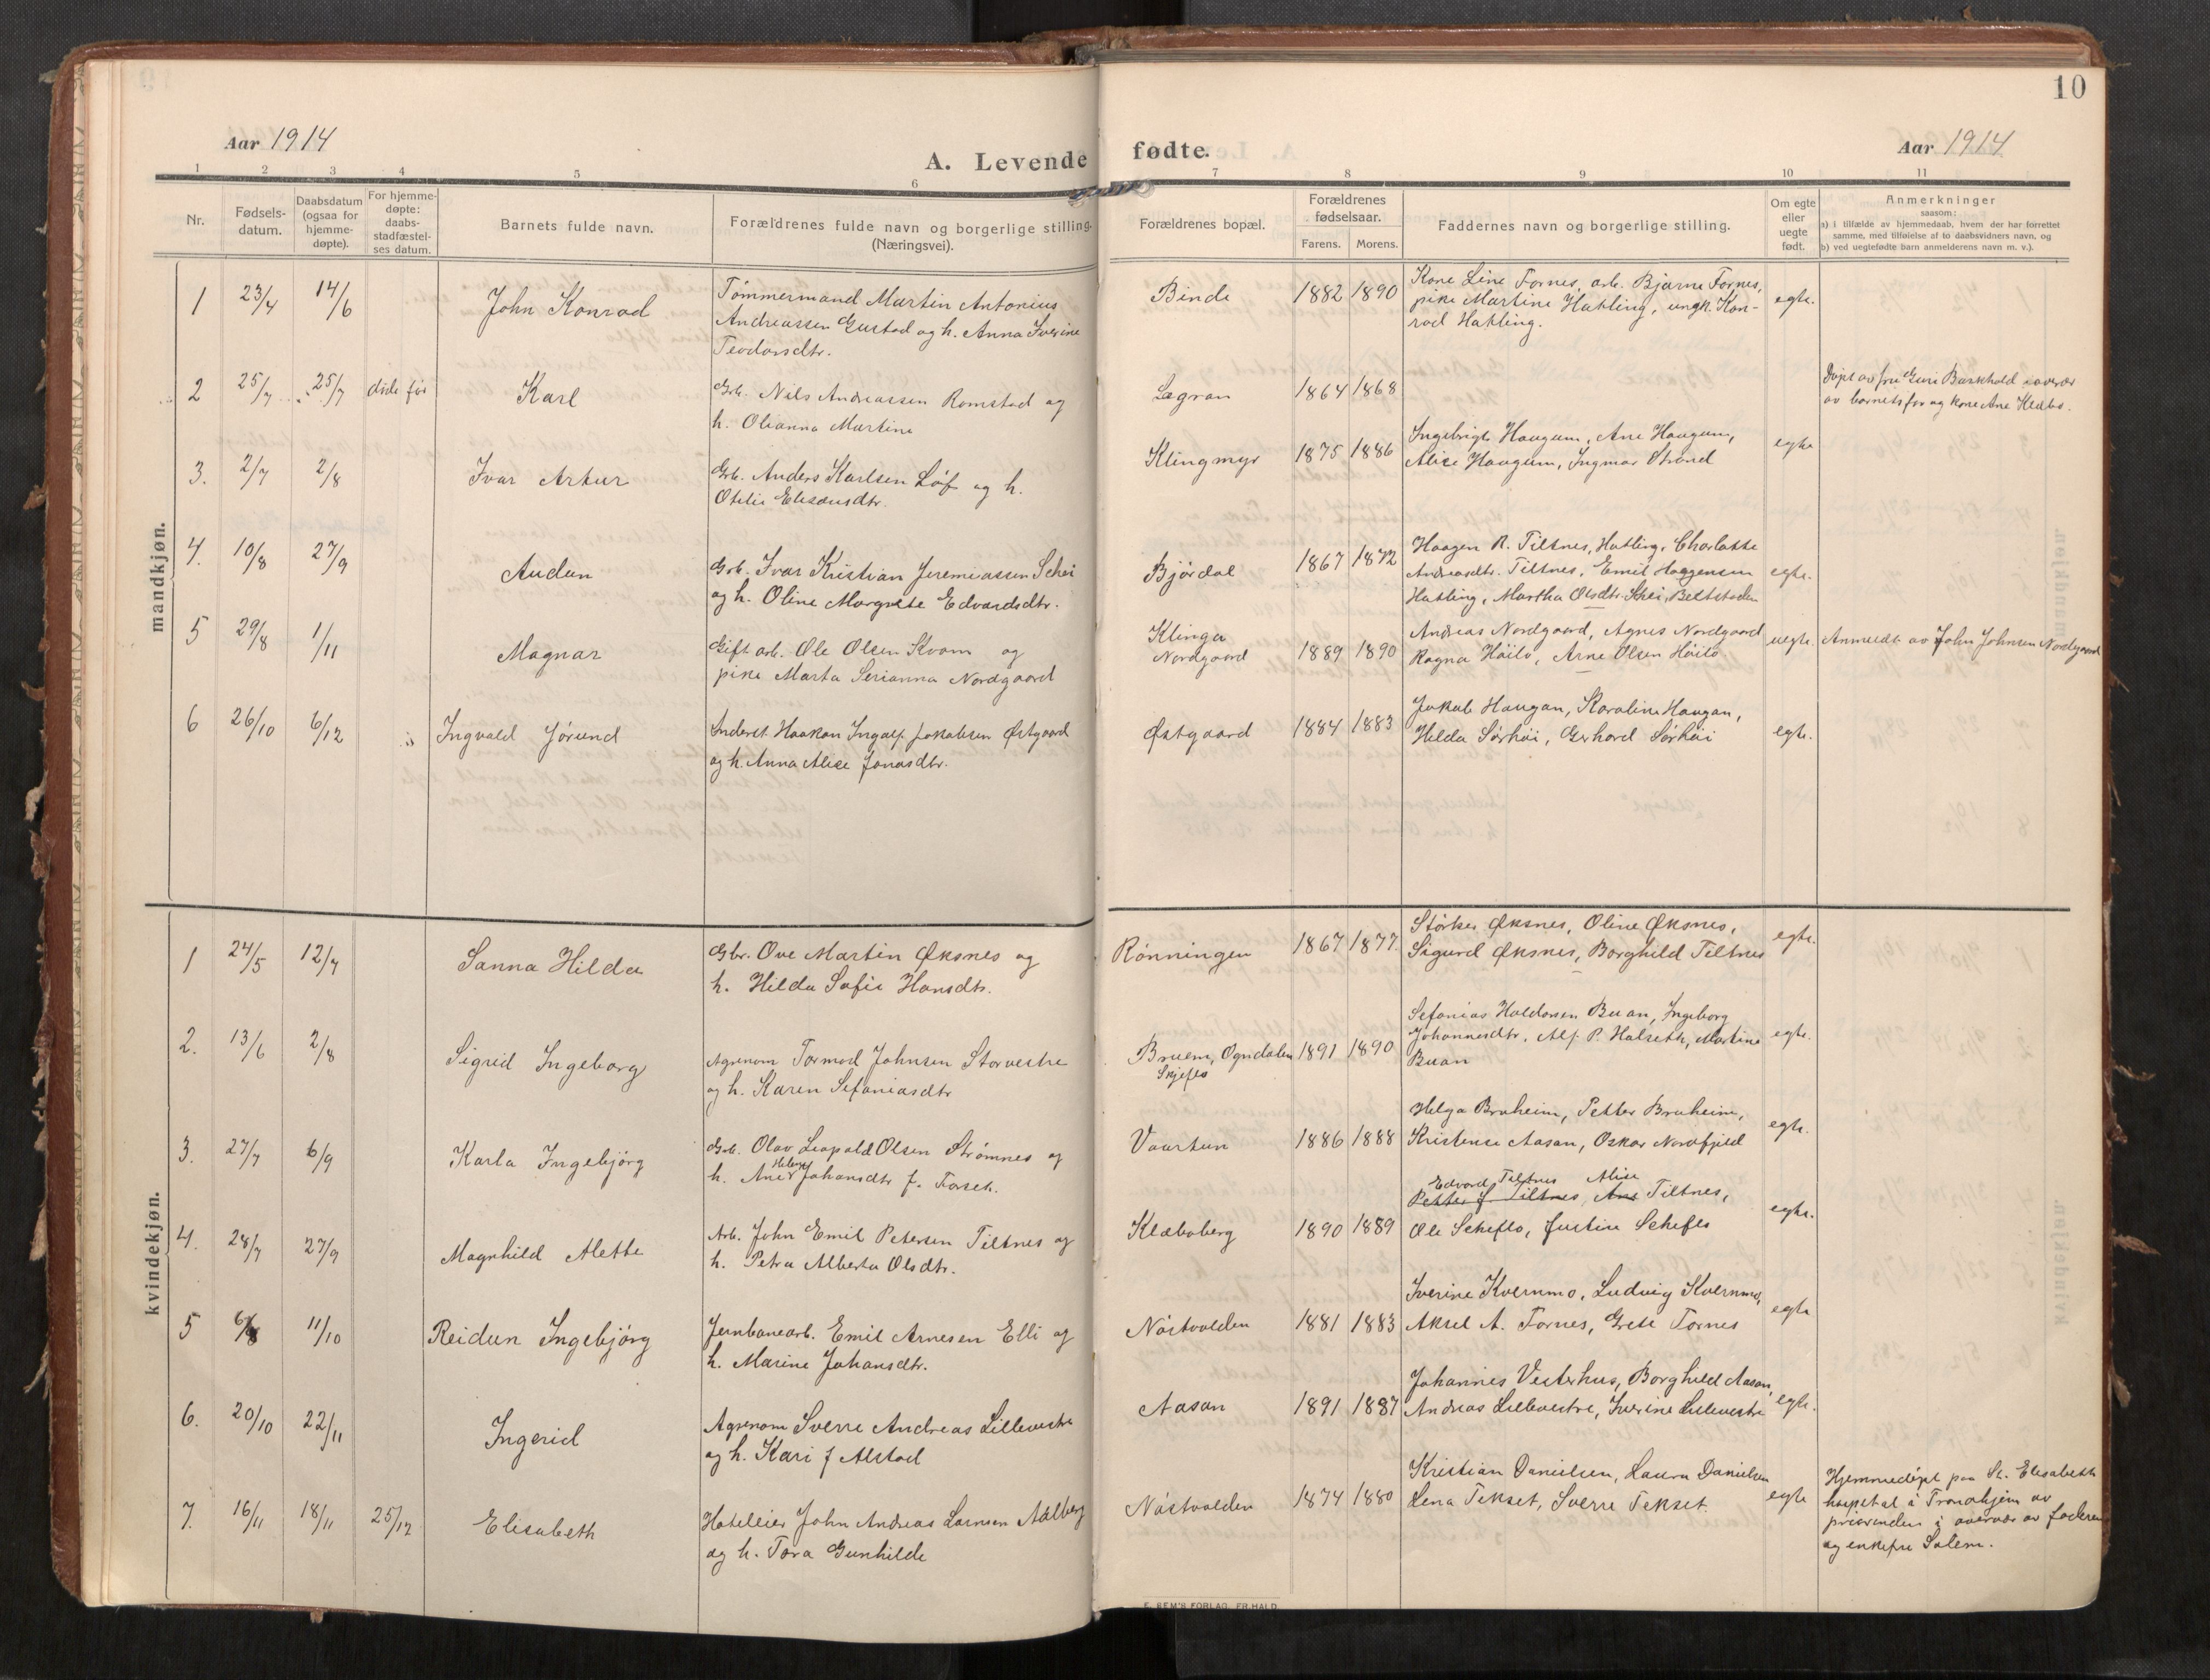 10
Aar 1914
A. Levende fødte.
Aar 1914
1 2 3 4 5 6 7 8 9 10 11
Nr.
Fødsels-
datum.
Daabsdatum
(ogsaa for
hjemme-
døpte).
For hjemme-
døpte:
daabs-
stadfæstel-
ses datum.
Barnets fulde navn.
Forældrenes fulde navn og borgerlige stilling.
(Næringsvei).
Forældrenes bopæl.
Forældrenes
fødselsaar.
Farens. Morens.
Faddernes navn og borgerlige stilling.
Om egte
eller
uegte
født.
Anmerkninger
saasom:
a) i tilfælde av hjemmedaab, hvem der har forrettet
samme, med tilføielse af to daabsvidners navn, og
b) ved uegtefødte barn anmelderens navn m. v.).
mandkjøn.
1 23/4 14/6 John Konrad
Tømmermand Martin Antonius
Andreassen Gustad og h. Anna Iverine
Teodorsdtr.
Binde 1882 1890
Kone Line Fornes, arb. Bjarne Fornes,
pike Martine Hatling, ungk. Kon-
rad Hatling.
egte.
2 25/7 25/7 døde før Karl
Grb. Nils Andreassen Romstad og
h. Olianna Martine
Lægran 1864 1868
Døpt av fru Guri Buskhold i overvær
av barnets far og kone Ane Klæbo.
3. 2/7 2/8 Ivar Artur
Grb. Anders Karlsen Løf og h.
Otelie Elisæusdtr.
Klingmyr 1875 1886
Ingebrigt Haugum, Ane Haugum,
Alise Haugum, Ingmar Strand
egte
4. 10/8 27/9 Audun
Grb. Ivar Kristian Jeremiassen Schei
og h. Oline Margrete Edvardsdtr.
Bjørdal 1867 1872
Haagen R. Tiltnes, Hatling, Charlotte
Andreasdtr. Tiltnes, Emil Haagensen
Hatling, Martha Olsdtr. Schei, Beitstaden
egte.
5 29/8 1/11 Magnar
Gift arb. Ole Olsen Kvam og
pike Marta Serianna Nordgaard
Klinga
Nordgaard 1889 1890
Andreas Nordgaard, Agnes Nordgaard
Ragna Høilo, Arne Olsen Høilo
uegte. Anmeldt av John Johnsen Nordgaard
6 26/10 6/12 Ingvald Jørund
Anderst. Haakon Ingolf Jakobsen Østgaard
og h. Anna Alise Jonasdtr.
Østgaard 1884 1883
Jakob Haugan, Karoline Haugan,
Hilda Sørhøi, Gerhard Sørhøi
egte.
kvindekjøn.
1 24/5 12/7 Sanna Hilda
Gbr. Ove Martin Øksnes og
h. Hilda Sofie Hansdtr.
Rønningen 1867 1877.
Størker Øksnes, Oline Øksnes,
Sigurd Øksnes, Borghild Tiltnes
egte.
2. 13/6 2/8 Sigrid Ingeborg
Agronom Tormod Johnsen Storvestre
og h. Karen Sefaniasdtr
Bruem, Ogndalen
Skjeflo 1891 1890
Sefanias Haldorsen Buan, Ingeborg
Johannesdtr. Alf P. Halseth, Martine
Buan
egte.
3. 27/7 6/9 Karla Ingebjørg
Grb. Olav Leopold Olsen Strømnes og
h. Ane Helene Johansdtr f. Forseth.
Vaartun 1886 1888
Helga Bruheim, Petter Bruheim,
Kristense Aasan, Oskar Nordfjeld
egte.
4. 28/7 27/9 Magnhild Alette
Arb. John Emil Petersen Tiltnes og
h. Petra Alberta Olsdtr.
Klæboberg 1890 1889
Edvard Tiltnes Alise
Petter J Tiltnes Ane Tiltnes,
Ole Scheflo, Justine Scheflo
egte.
5 6/8 11/10 Reidun Ingebjørg
Jernbanearb. Emil Arnesen Elli og
h. Marine Johansdtr.
Nøstvolden 1881 1883
Iverine Kvernmo, Ludvig Kvernmo,
Aksel A. Fornes, Grete Fornes
egte
6. 20/10 22/11 Ingerid
Agronom Sverre Andreas Lillevestre
og h. Kari f Alstad
Aasan 1891 1887
Johannes Vesterhus, Borghild Aasan,
Andreas Lillevestre, Iverine Lillevestre
egte.
7. 16/11 18/11 25/12 Elisabeth
Hoteleier John Andreas Larnsen Aalberg
og h. Tora Gunhilde
Nøstvolden 1874 1880
Kristian Danielsen, Laura Danielsen
Lena Tekset, Sverre Tekset.
egte
Hjemmedøpt paa St. Elisabeth
hospital i Trondhjem av
priorinden i overvær av faderen
og enkefru Solem.
E. SEM'S FORLAG, FR.HALD.